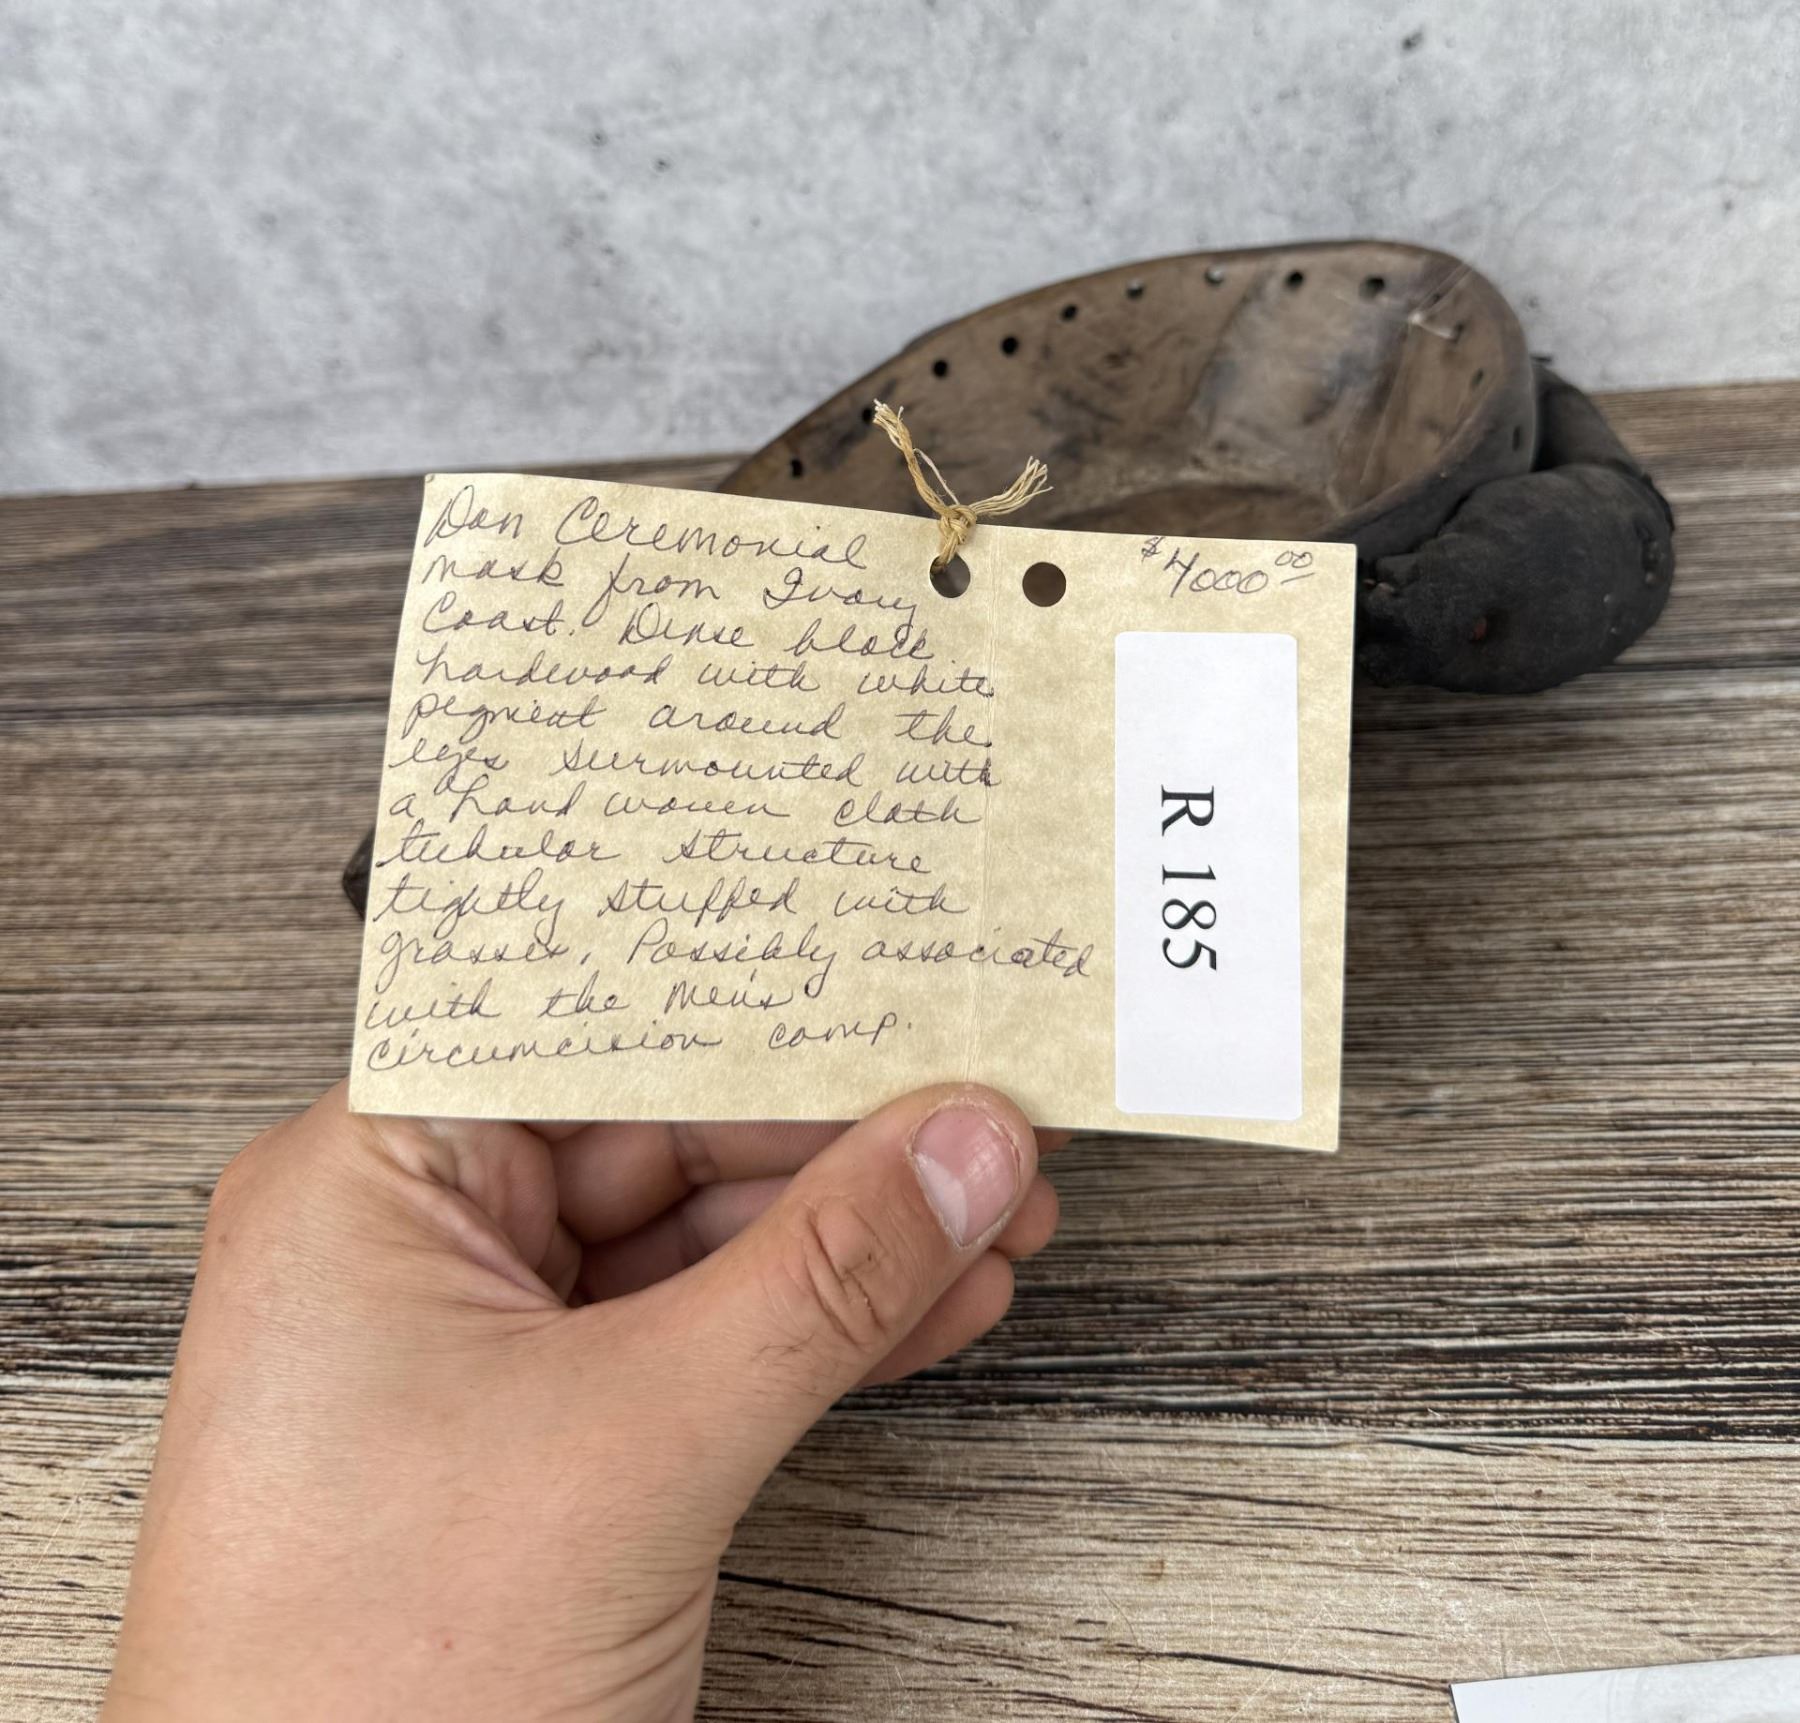 Dan Ceremonial
mask from Ivory
Coast. Dense black
hardwood with white
pigment around the
eyes surmounted with
a hand woven cloth
tubular structure
tightly stuffed with
grasses. Possibly associated
with the men's
circumcision camp.
$4000.00
R 185